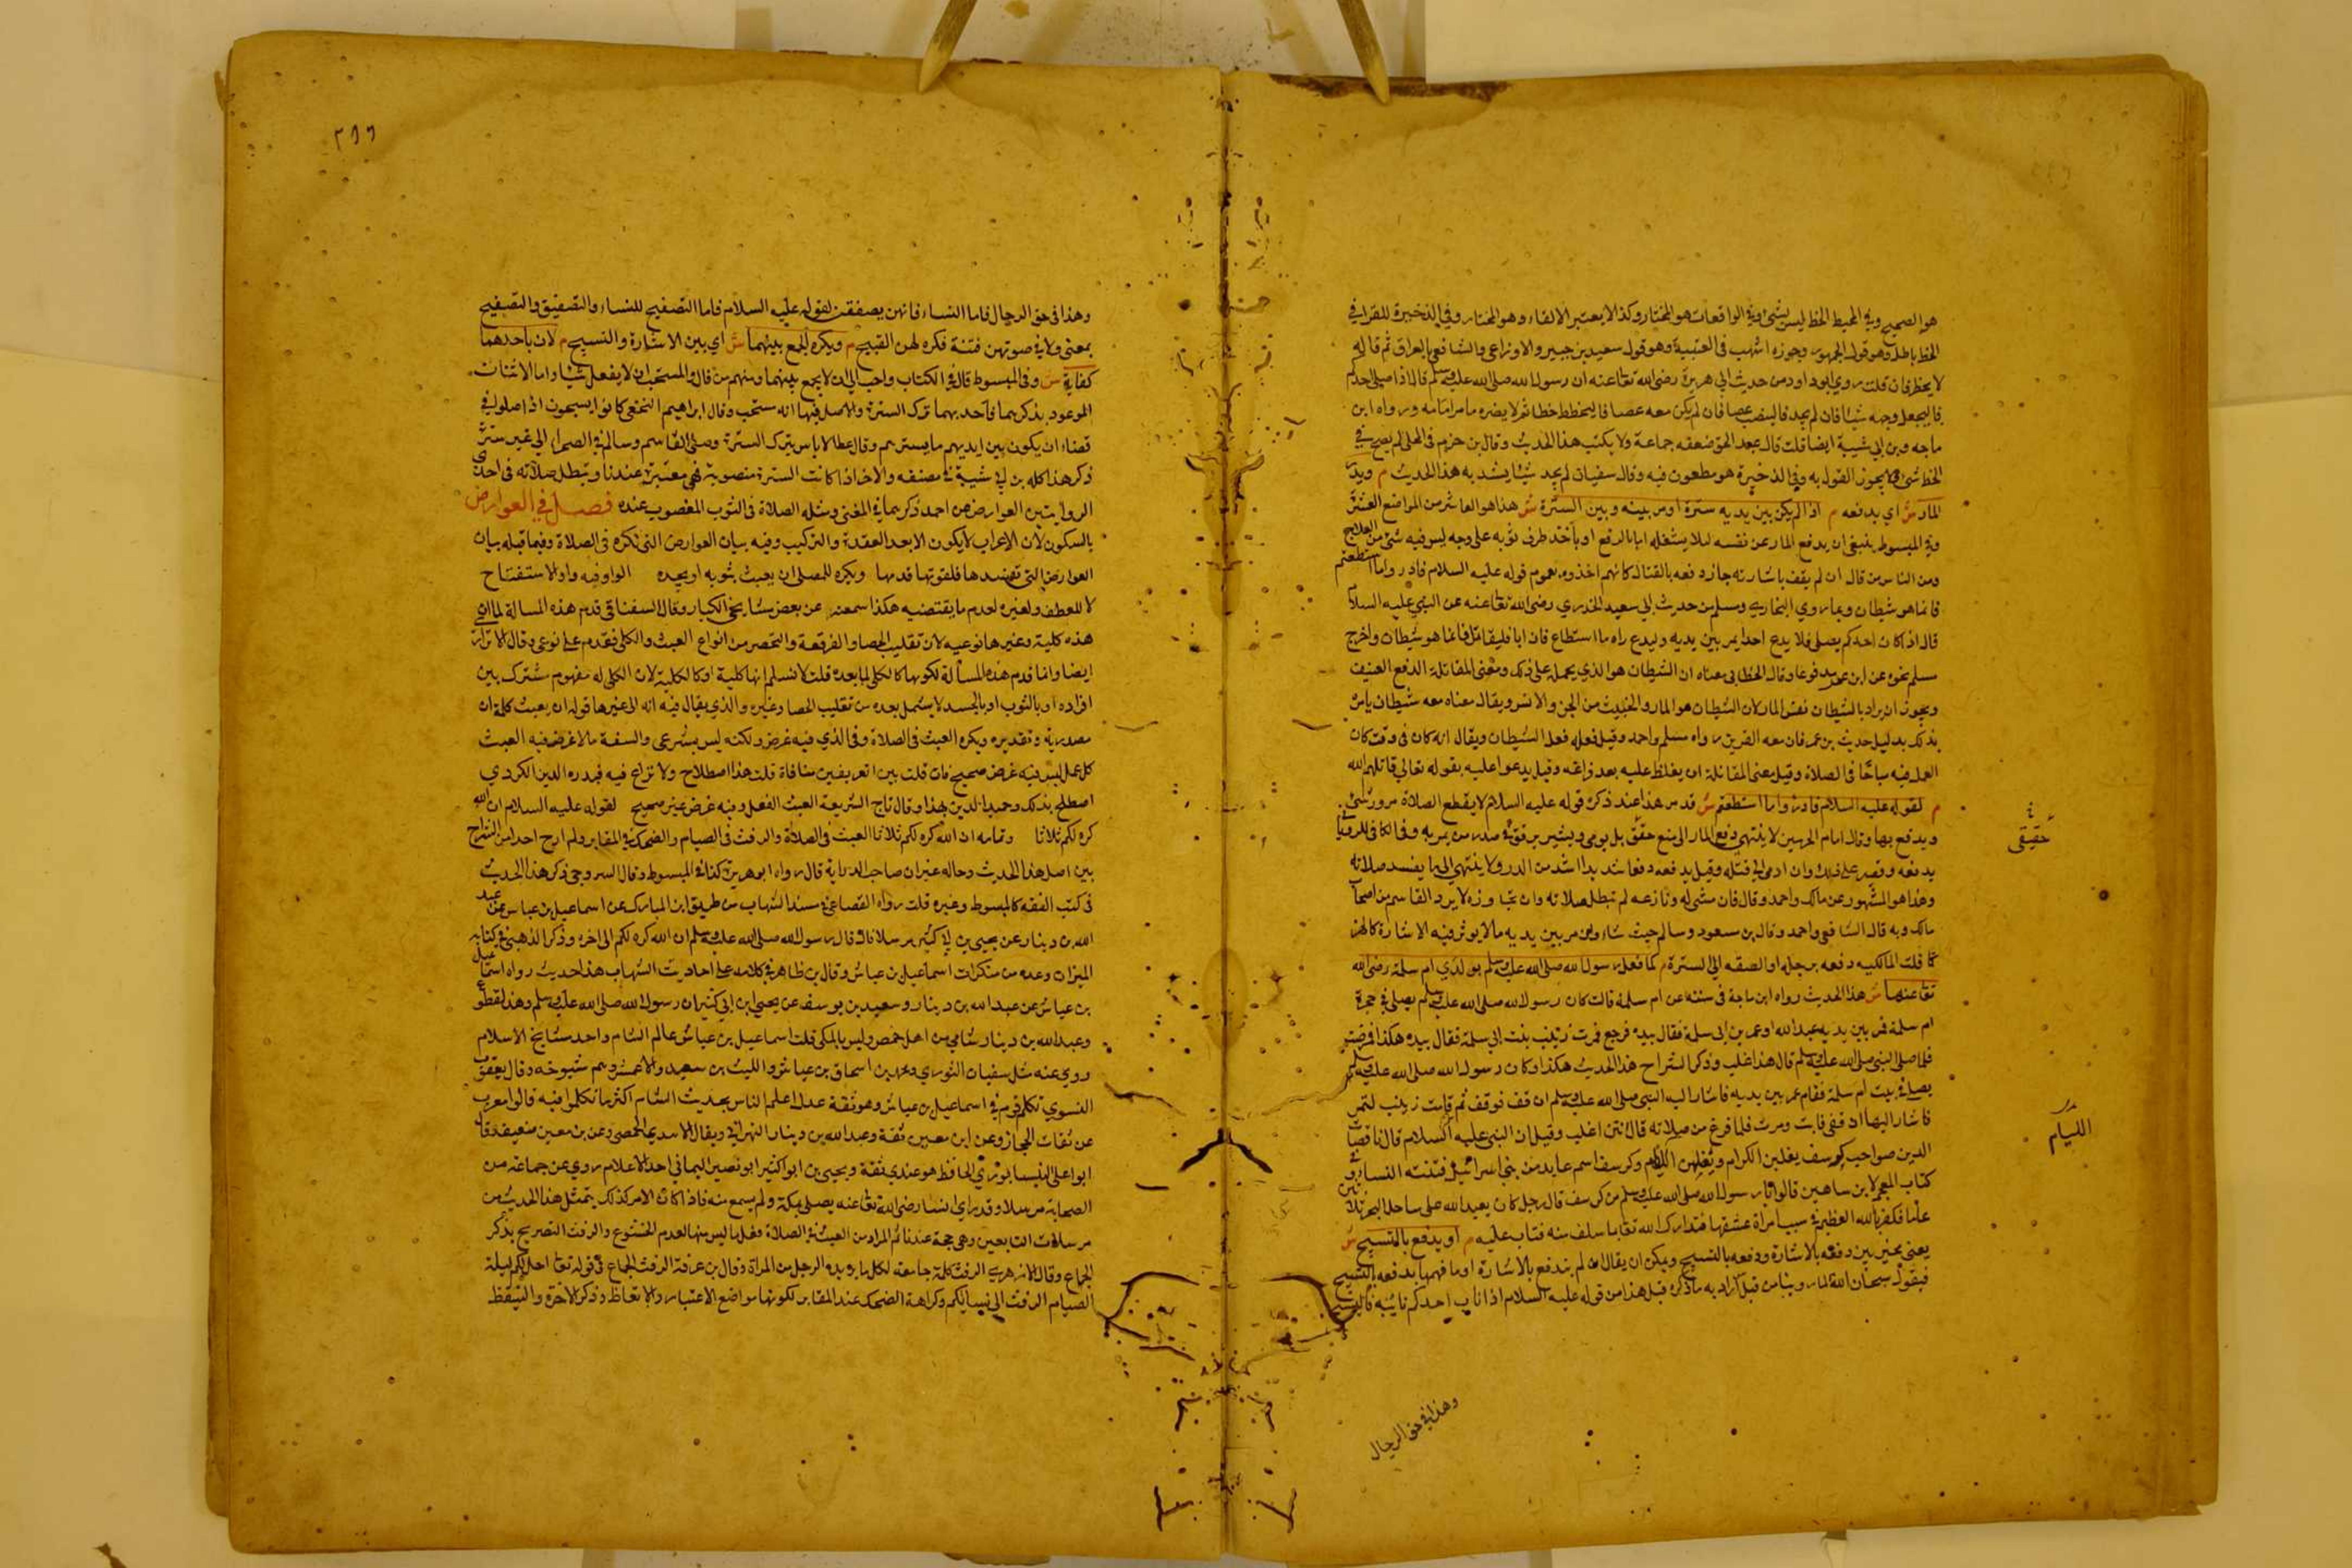 هو الصحيح وفي المحيط الخط ليس بشئ وفي الواقعات هو المختار وكذا لا يعتبر الالقاء وهو المختار وفي الذخيرة للقرافي
الخط باطل وهو قول الجمهور وجوزه اشهب في العتبية وهو قول سعيد بن جبير والاوزاعي والشافعي بالعراق ثم قال
لا يخط فان قلت روي ابو داود من حديث ابي هريرة رضي الله تعا عنه ان رسول الله صلى الله عليه وسلم قال اذا صلى احدكم
فليجعل وجهه شيئا فان لم يجد فالينصب عصا فان لم يكن معه عصا فاليخطط خطا ثم لا يضره ما مر امامه ورواه ابن
ماجه وبن ابي شيبة ايضا قلت قال عبد الحق ضعفه جماعة ولا يكتب هذا الحديث وقال بن حزم في المحلى لم يصح في
الخط شئ ولا يجوز القول به وفي الذخيرة هو مطعون فيه وقال سفيان لم يجد شيئا يشد به هذا الحديث م ويدرا
المار ش اي يدفعه م اذا لم يكن بين يديه سترة او مر بينه وبين السترة ش هذا هو العاشر من المواضع العشرة
وفي المبسوط ينبغي ان يدفع المار عن نفسه لئلا يشغله اما بالدفع او باخذ طرف ثوبه على وجه ليس فيه شئ من العلاج
ومن الناس من قال ان لم يقف باشارته جاز دفعه بالقتال كانهم اخذوه بعموم قوله عليه السلام فادروا ما استطعتم
فانما هو شيطان وبما روي البخاري ومسلم من حديث ابي سعيد الخدري رضي الله تعا عنه عن النبي عليه السلام
قال اذا كان احدكم يصلي فلا يدع احدا يمر بين يديه وليدع راه ما استطاع فان ابا فليقاتل فانما هو شيطان واخرج
مسلم نحوه عن ابن عمر مرفوعا وقال الخطابي معناه ان الشيطان هو الذي يحمله على ذلك ومعنى المقاتلة الدفع العنيف
ويجوز ان يراد بالشيطان نفس المار لان الشيطان هو المارد الخبيث من الجن والانس ويقال معناه معه شيطان يامره
بذلك بدليل حديث بن عمر فان معه القرين رواه مسلم واحمد وقيل فعله فعل الشيطان ويقال انه كان في وقت كان
العمل فيه مباحا في الصلاة وقيل معنى المقاتلة ان يغلظ عليه بعد فراغه وقيل يدعوا عليه بقوله تعالى قاتلهم الله
م لقوله عليه السلام فادروا ما استطعتم ش قد مر هذا عند ذكره قوله عليه السلام لا يقطع الصلاة مرور شئ
ويدفع بها وقال امام الحرمين لا ينتهي دفع المار الى منع حقق بل يومي ويشير برفق في صدر من يمر به وفي الكافي للروياني
حقيقي
يدفعه ويصر على ذلك وان ادى الى قتله وقيل يدفعه دفعا شديدا اشد من الدرء ولا ينتهي الى ما يفسد صلاته
وهذا هو المشهور عن مالك واحمد وقال فان مشى له ونازعه لم تبطل صلاته وان تجاوزه لا يرد القاسم من اصحاب
مالك وبه قال الشافعي واحمد وقال بن مسعود وسالم حيث شاء ولمن مر بين يديه مالا يوثر فيه الاشارة كالهر
كما قلت المالكيه دفعه برجله او الصقه الى السترة م كما فعل رسول الله صلى الله عليه وسلم بولدي ام سلمة رضي الله
تعا عنها ش هذا الحديث رواه ابن ماجة في سننه عن ام سلمة قالت كان رسول الله صلى الله عليه وسلم يصلي في حجرة
ام سلمة فمر بين يديه عبد الله او عمر بن ابي سلمة فقال بيده فرجع فمرت زينب بنت ابي سلمة فقال بيده هكذا فمضت
فلما صلى النبي صلى الله عليه وسلم قال هذا اغلب وذكر الشراح هذا الحديث هكذا وكان رسول الله صلى الله عليه وسلم
يصلي في بيت ام سلمة فقام عمر بين يديه فاشار اليه النبي صلى الله عليه وسلم ان قف فوقف ثم قامت زينب لتمر
فاشار اليها ان قفي فابت ومرت فلما فرغ من صلاته قال انتن اغلب وقيل ان النبي عليه السلام قال ناقصات
الليام
الدين صواحب كرسف يغلبن الكرام ويغلبهن اللئام وكرسف اسم عابد من بني اسرائيل فتنته النساء وفي
كتاب المعجم لابن شاهين قالوا يا رسول الله صلى الله عليه وسلم من كرسف قال رجل كان يعبد الله على ساحل البحر ثلاثين
عاما فكفر بالله العظيم في سبب امراة عشقها فتدارك الله تعا بما سلف منه فتاب عليه م او يدفع بالتسبيح ش
يعني يخير بين دفعه بالاشارة ودفعه بالتسبيح ويمكن ان يقال ان لم يندفع بالاشارة او ما فهمها يدفعه بالتسبيح
فيقول سبحان الله للمار وبيانه من قبل اراد به ما ذكره قبل هذا من قوله عليه السلام اذا ناب احدكم نائبة فاليسبح
وهذا في حق الرجال
٢٦٦
وهذا في حق الرجال فاما النساء فانهن يصفقن لقوله عليه السلام فاما التصفيح للنساء والتصفيق والتصفيح
بمعنى ولا في صوتهن فتنة فكره لهن القبيح م ويكره الجمع بينهما ش اي بين الاشارة والتسبيح م لان باحدهما
كفاية ش وفي المبسوط قال في الكتاب واحب الي ان لا يجمع بينهما ومنهم من قال والمستحب ان لا يفعل شيئا واما الاثنان
الموعود بذكرهما فاحدهما ترك السترة والاصل فيها انه مستحب وقال ابراهيم النخعي كانوا يسبحون اذا صلوا في
فضاء ان يكون بين ايديهم ما يسترهم وقال عطا لا باس بترك السترة وصلى القاسم وسالم في الصحراء الى غير سترة
ذكر هذا كله بن ابي شيبة في مصنفه والاخر اذا كانت السترة مغصوبة فهي معتبرة عندنا وتبطل صلاته في احدى
الروايتين العوارض عن احمد ذكرهما في المغني ومثله الصلاة في الثوب المغصوب عنده فصـــل في العوارض
بالسكون لان الاعراب لا يكون الا بعد العقدة والتركيب وفيه بيان العوارض التي تكره في الصلاة وفيما قبله بيان
العوارض التي تفسدها فلقوتها قدمها ويكره للمصلي ان يعبث بثوبه او بجسده الواو فيه واو الاستفتاح
لا للعطف ولغيره لعدم ما يقتضيه هكذا سمعته عن بعض مشايخي الكبار وقال السفناقي قدم هذه المسالة لما ان
هذه كلية وغيرها نوعيه لان تقليب الحصا والفرقعة والتخصر من انواع العبث والكلي مقدم على نوعي وقال الاترازي
ايضا وانما قدم هذه المسألة لكونها كالكلي لما بعده قلت لا نسلم انها كلية او كالكلية لان الكلي له مفهوم مشترك بين
افراده او بالثوب او بالجسد لا يشمل بعده من تقليب الحصا وغيره والذي يقال فيه انه الى غيرها قوله ان يعبث كلمة ان
مصدرية وتقديره ويكره العبث في الصلاة وفي الذي فيه غرض ولكنه ليس بشرعي والسفه مالا غرض فيه العبث
كل عمل ليس فيه غرض صحيح فان قلت بين التعريفين منافاة قلت هذا اصطلاح ولا نزاع فيه فبدره الدين الكردي
اصطلح بذلك وحميد الدين بهذا وقال تاج الشريعة العبث الفعل وفيه غرض غير صحيح لقوله عليه السلام ان الله
كره لكم ثلاثا وتمامه ان الله كره لكم ثلاثا العبث في الصلاة والرفث في الصيام والضحك في المقابر ولم ار احدا من الشراح
بين اصل هذا الحديث وحاله غير ان صاحب الدراية قال رواه ابو هريرة كذا في المبسوط وقال السروجي ذكر هذا الحديث
في كتب الفقه كالمبسوط وغيره قلت رواه القضاعي في مسند الشهاب من طريق ابن المبارك عن اسماعيل بن عياس عن عبد
الله بن دينار عن يحيى بن ابي كثير مرسلا قال قال رسول الله صلى الله عليه وسلم ان الله كره لكم الى اخره وذكر الذهبي في كتابه
الميزان وعده من منكرات اسماعيل بن عياش وقال بن طاهر في كلامه على احاديث الشهاب هذا حديث رواه اسماعيل
بن عياش عن عبد الله بن دينار وسعيد بن يوسف عن يحيى ابن ابي كثير ان رسول الله صلى الله عليه وسلم وهذا مقطوع
وعبد الله بن دينار شامي من اهل حمص وليس بالمكي قلت اسماعيل بن عياش عالم الشام واحد مشايخ الاسلام
روي عنه مثل سفيان الثوري ومحمد بن اسحاق بن عياش والليث بن سعيد والاعمش وهم شيوخه وقال يعقوب
النسوي تكلم قوم في اسماعيل بن عياش وهو ثقة عدل اعلم الناس بحديث الشام اكثر ما تكلموا فيه قالوا يغرب
عن ثقات الحجاز وعن ابن معين ثقة وعبد الله بن دينار النهراني ويقال الاسدي الحمصي وعن بن معين ضعيف وقال
ابو علي النيسابوري الحافظ هو عندي ثقة ويحيى بن ابو اكثير ابو نصير اليماني احد الاعلام روي عن جماعة من
الصحابة مرسلا وقد راى انسا رضي الله تعا عنه يصلي بمكة ولم يسمع منه فاذا كان الامر كذلك يتمثل هذا الحديث من
مرسلات التابعين وهي حجة عندنا ثم المراد من العبث في الصلاة وفعل ما ليس منها لعدم الخشوع والرفث التصريح بذكر
الجماع وقال الازهري الرفث كلمة جامعة لكل ما يريده الرجل من المراة وقال بن عرفة الرفث الجماع في قوله تعا احل لكم ليلة
الصيام الرفث الى نسائكم وكراهة الضحك عند المقابر لكونها مواضع الاعتبار والاتعاظ وذكر الاخرة والتيقظ